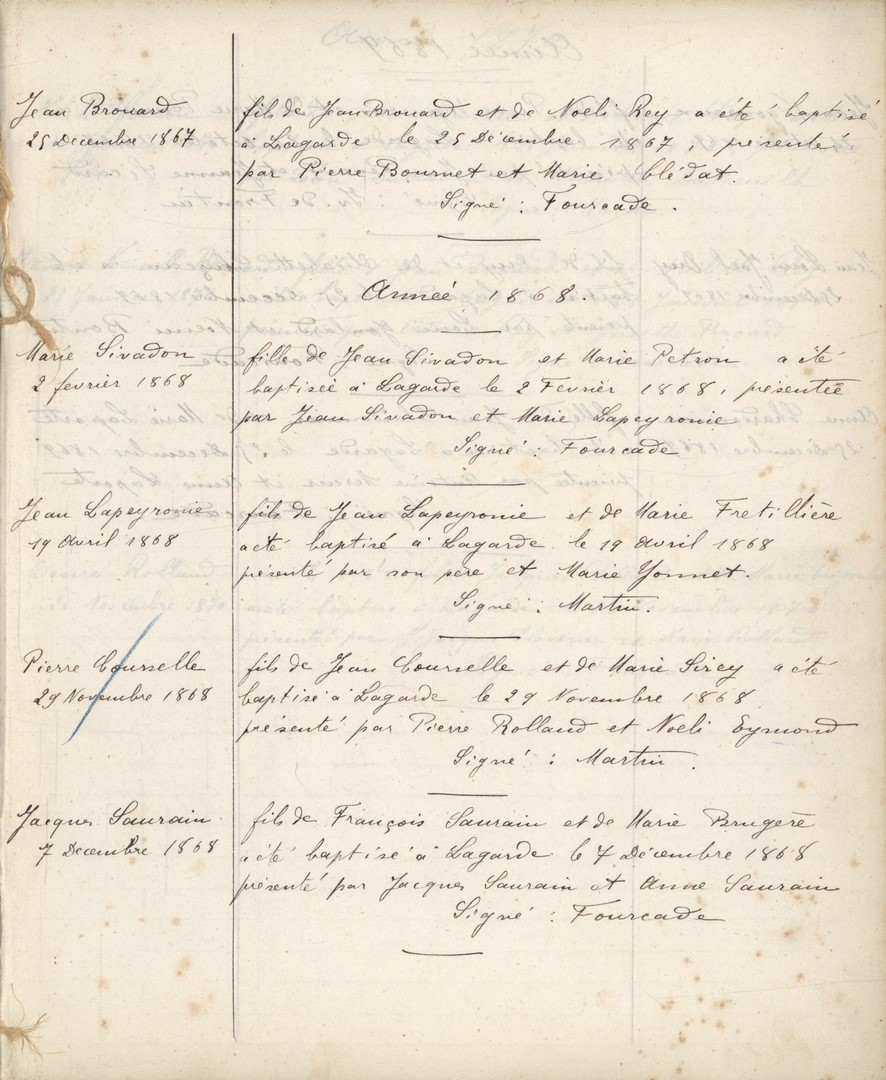 Jean Brouard
25 Decembre 1867
fils de Jean Brouard et de Noëli Rey a été baptisé
à Lagarde le 25 Décembre 1867, présenté
par Pierre Bournet et Marie blédat.
Signé : Fourcade.
Année 1868.
Marie Sivadon
2 fevrier 1868
fille de Jean Sivadon et Marie Petron a été
baptiseé à Lagarde le 2 Fevrier 1868, présenteé
par Jean Sivadon et Marie Lapeyronie
Signé : Fourcade
Jean Lapeyronie
19 avril 1868
fils de Jean Lapeyronie et de Marie Fretillière
a été baptisé à Lagarde le 19 avril 1868
présenté par son père et Marie Yonnet.
Signé : Martin.
Pierre Courselle
29 Novembre 1868
fils de Jean Courselle et de Marie Sirey a été
baptisé à Lagarde le 29 Novembre 1868
présenté par Pierre Rolland et Noëli Eymond
Signé : Martin.
Jacques Saurain
7 Decembre 1868
fils de François Saurain et de Marie Brugère
a été baptisé à Lagarde le 7 Décembre 1868
présenté par Jacques Saurain et Anne Saurain
Signé : Fourcade